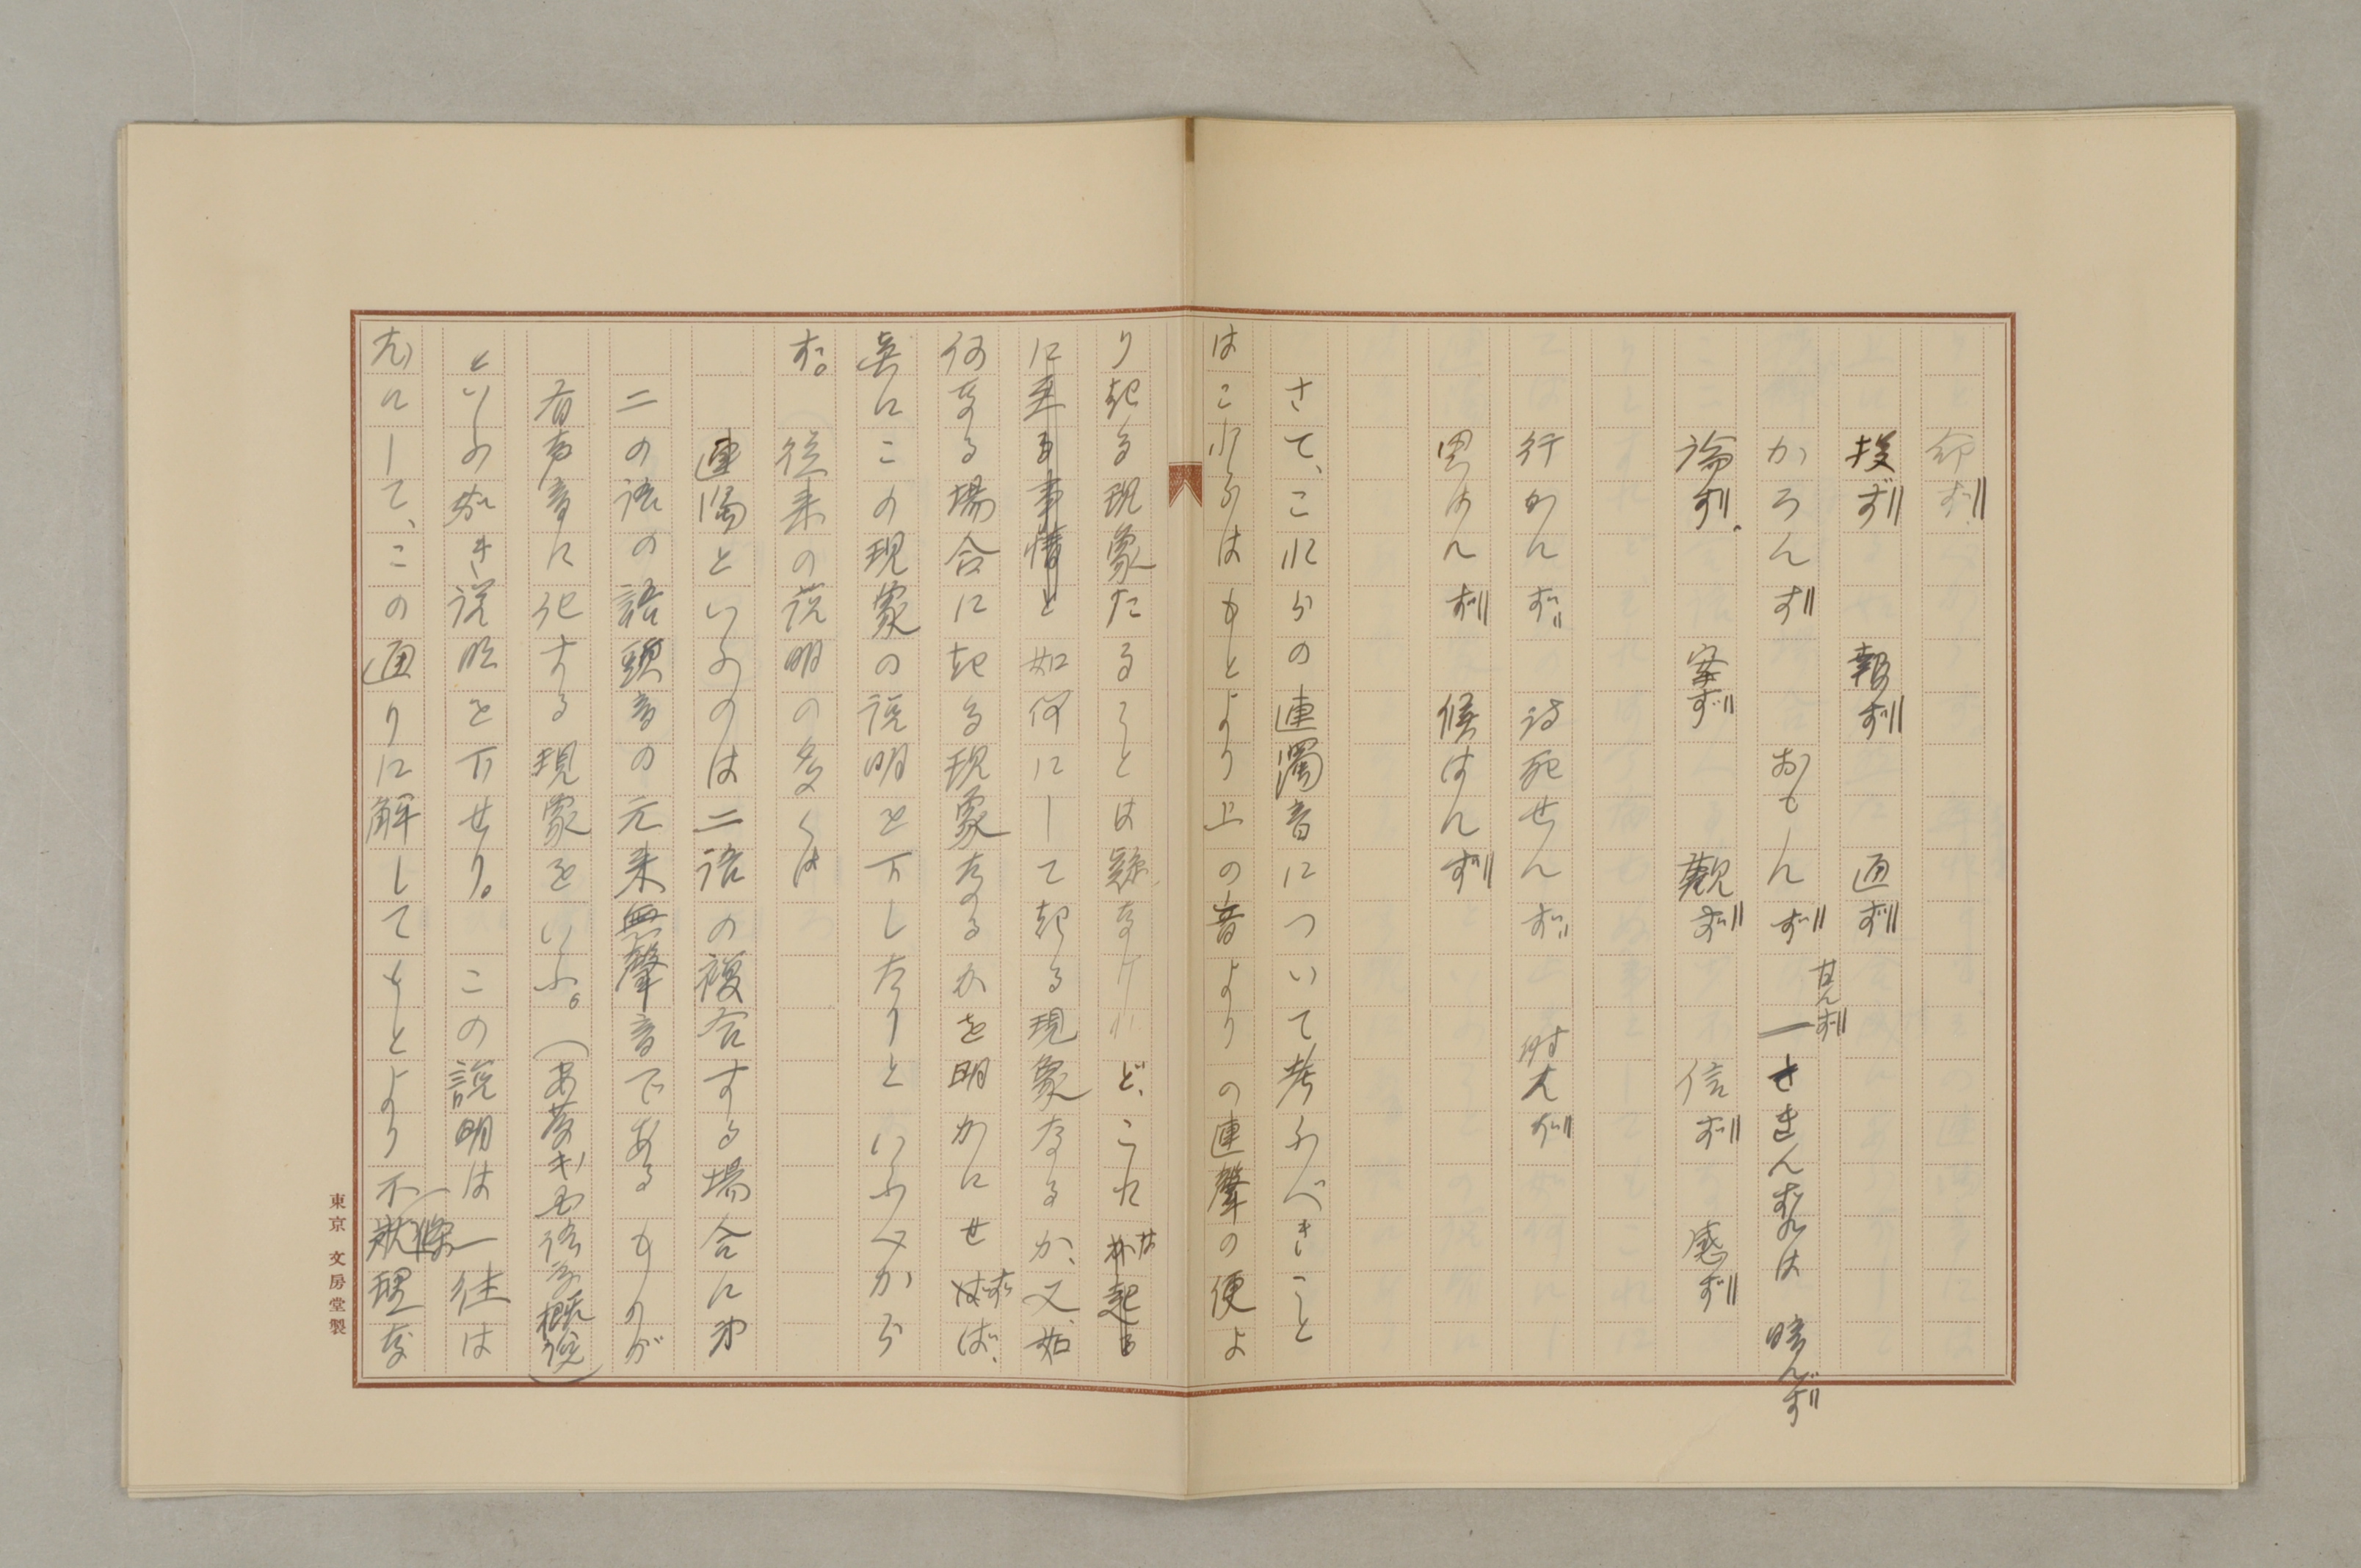 命ず
投ず　報ず　通ず
かろんず　おもんず　甘んず　さきんずるは　暗んず
論ず　案ず　觀ず　信ず　感ず
行かんず　討死せんず
思はんず　候はんず
さて、これらの連濁音について考ふべきこと
はこれらはもとより上の音よりの連聲の便よ
り起る現象たることは疑なけれど、これは
に至る事情と如何にして起る現象なるか、又如
何なる場合に起る現象なるかを明かにせずば、
眞にこの現象の説明を下したりといふべから
ず。従来の説明の多くは
連濁といふのは二語の複合する場合に第
二の語の語頭音の元来無聲音であるものが
有聲音に化する現象をいふ。（安藤氏国語学概説）
といふ如き説明を下せり。この説明は一往は
尤にして、この通りに解してもとより不條理な
東京 文房堂製